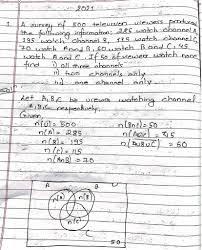 2021
1. A survey of 500 television viewers produced
the following information: 285 watch channel A
195 watch channel B, 115 watch channel C
70 watch A and B, 50 watch B and C, 45
watch A and C. If 50 of viewers watch none
find i) all three channels
ii) two channels only
iii) one channel only
Let A, B, C be viewers watching channel
A, B, C respectively.
Given
n(U) = 500
n(B∩C) = 50
n(A) = 285
n(A∩C) = 45
n(B) = 195
n(C) = 115
n(A∩B) = 70
A
B
U
n(A)
n(B)
C
50